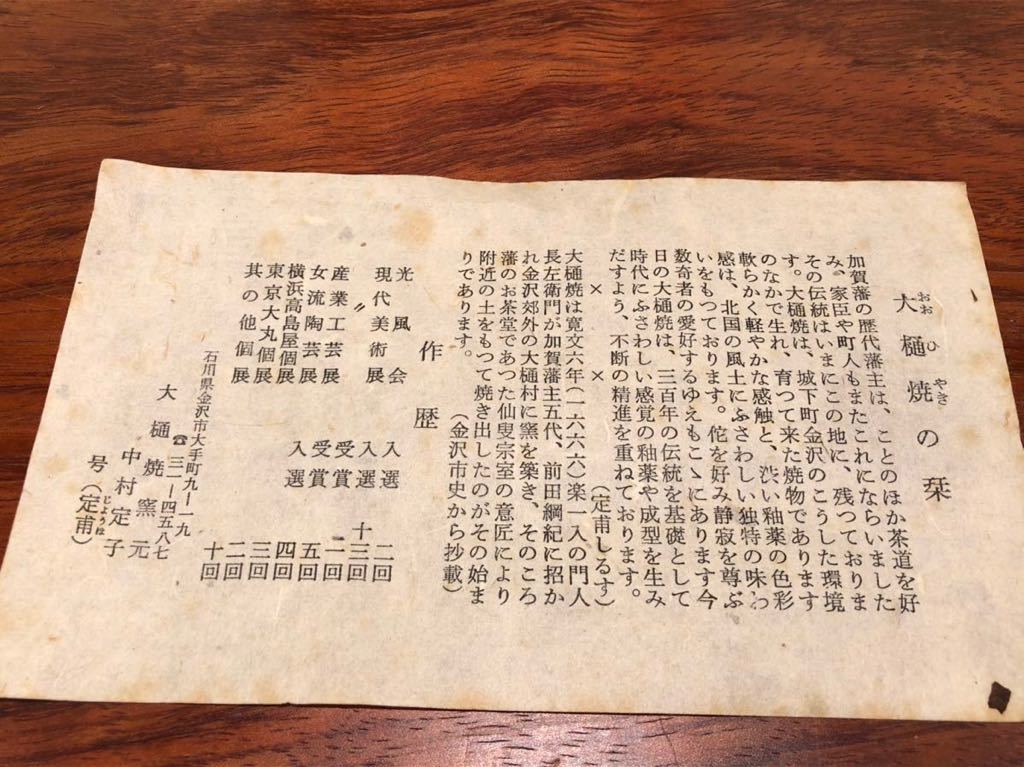 大樋焼の栞
おおひやき
加賀藩の歴代藩主は、ことのほか茶道を好
み、家臣や町人もまたこれにならいました
その伝統はいまにこの地に、残つておりま
す。大樋焼は、城下町金沢のこうした環境
のなかで生れ、育つて来た焼物であります
軟らかく軽やかな感触と、渋い釉薬の色彩
感は、北国の風土にふさわしい独特の味わ
いをもつております。侘を好み静寂を尊ぶ
数奇者の愛好するゆえもこゝにあります今
日の大樋焼は、三百年の伝統を基礎として
時代にふさわしい感覚の釉薬や成型を生み
だすよう、不断の精進を重ねております。
× × (定甫しるす)
大樋焼は寛文六年(一六六六)楽一入の門人
長左衛門が加賀藩主五代、前田綱紀に招か
れ金沢郊外の大樋村に窯を築き、そのころ
藩のお茶堂であつた仙叟宗室の意匠により
附近の土をもつて焼き出したのがその始ま
りであります。 (金沢市史から抄載)
作歴
光風会 入選 二回
現代美術展 入選 十三回
〃 受賞 一回
産業工芸展 受賞 五回
女流陶芸展 入選 四回
横浜高島屋個展 三回
東京大丸個展 二回
其の他個展 十回
石川県金沢市大手町九ー一九
☎ 三一ー四五八七
大樋焼窯元
中村定子
号(定甫)
じようほ